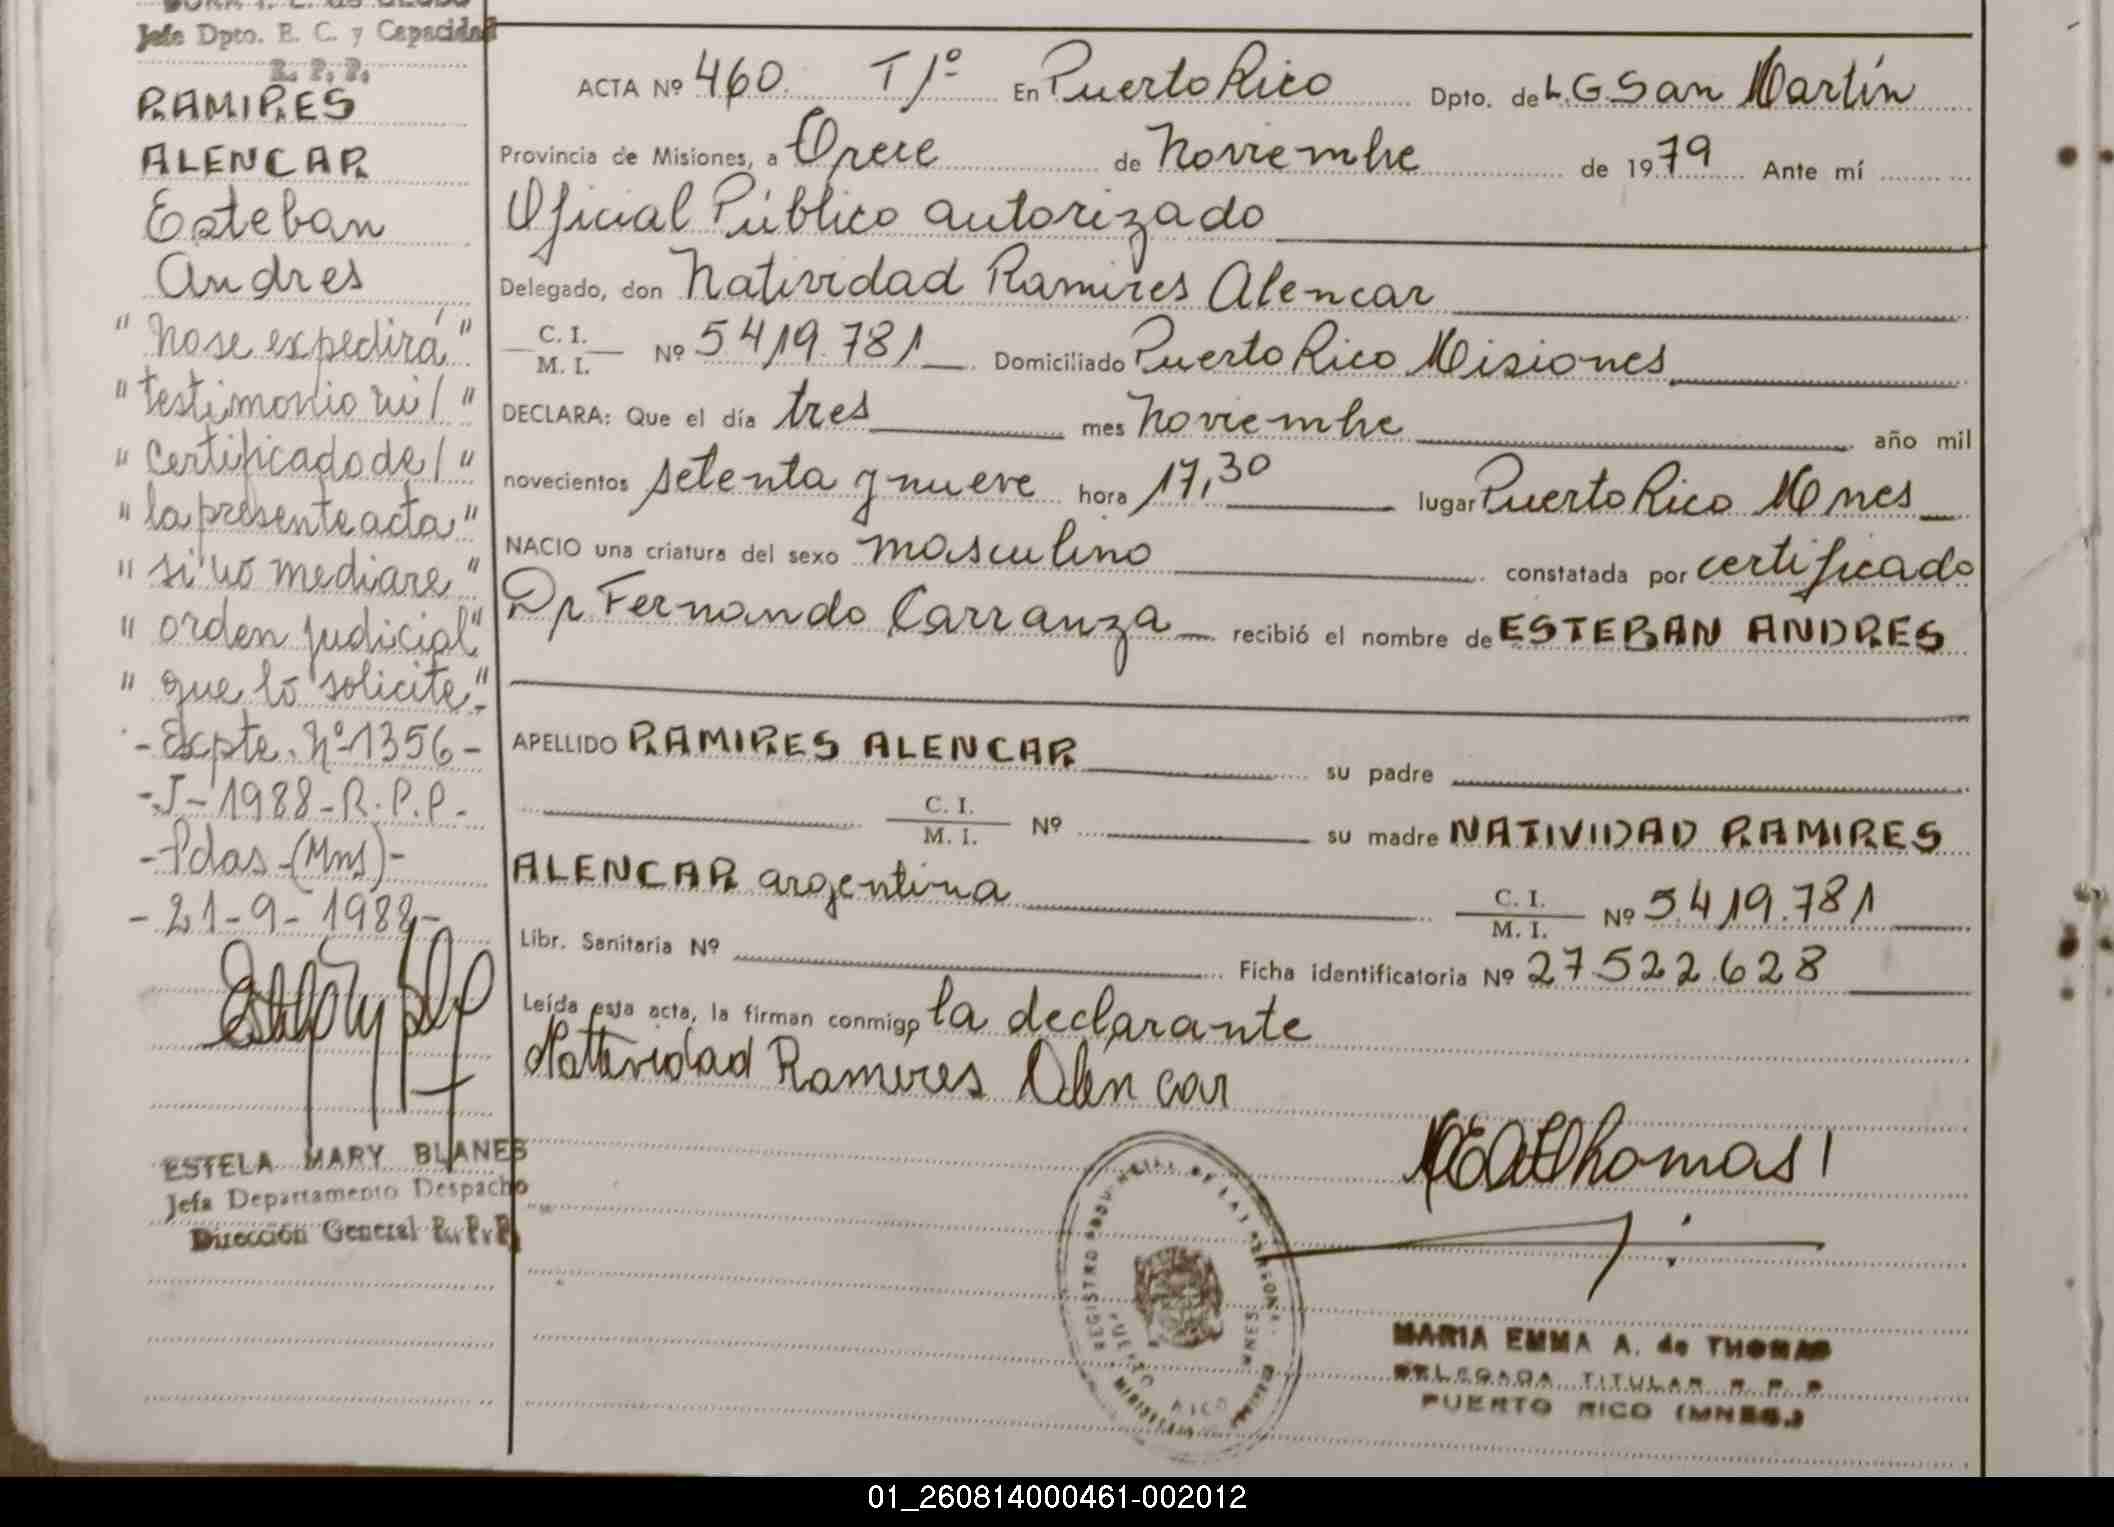 Jefe Dpto. E. C. y Capacidad
R. P. P.
RAMIRES
ALENCAR
Esteban
Andres
"No se expedirá"
"testimonio ni/"
"Certificado de/"
"la presente acta"
"si no mediare"
"orden judicial"
"que lo solicite"-
-Expte. Nº 1356-
-J-1988-R.P.P.-
-Pdas-(Mns)-
-21-9-1988-
ESTELA MARY BLANES
Jefa Departamento Despacho
Dirección General R. P. P.
ACTA Nº 460 T 1º En Puerto Rico Dpto. de L. G. San Martín
Provincia de Misiones, a Once de Noviembre de 1979 Ante mí
Oficial Público autorizado
Delegado, don Natividad Ramires Alencar
C. I. / M. I. Nº 5.419.781 Domiciliado Puerto Rico Misiones
DECLARA: Que el día tres mes Noviembre año mil
novecientos setenta y nueve hora 17,30 lugar Puerto Rico Mnes
NACIO una criatura del sexo masculino constatada por certificado
Dr Fernando Carranza recibió el nombre de ESTEBAN ANDRES
APELLIDO RAMIRES ALENCAR su padre
C. I. / M. I. Nº su madre NATIVIDAD RAMIRES
ALENCAR argentina C. I. / M. I. Nº 5.419.781
Libr. Sanitaria Nº Ficha identificatoria Nº 27.522.628
Leída esta acta, la firman conmigo la declarante
Nattividad Ramires Alencar
MEAThomas
REGISTRO PROVINCIAL DE LAS PERSONAS
PUERTO RICO
MNES
MARIA EMMA A. de THOMAS
DELEGADA TITULAR R. P. P.
PUERTO RICO (MNES.)
01_260814000461-002012